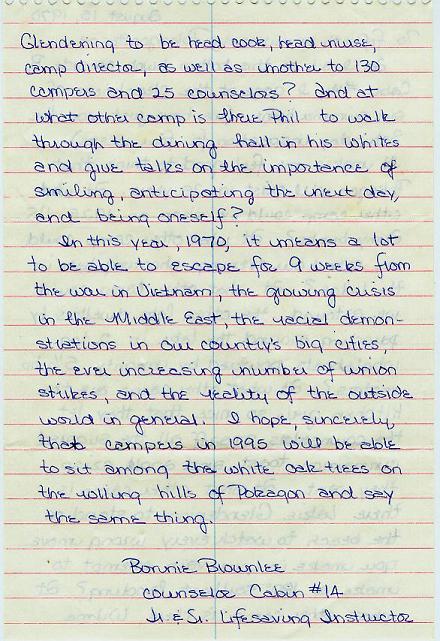 Glendening to be head cook, head nurse,
camp director, as well as mother to 130
campers and 25 counselors? And at
what other camp is there Phil to walk
through the dining hall in his whites
and give talks on the importance of
smiling, anticipating the next day,
and being oneself?
In this year, 1970, it means a lot
to be able to escape for 9 weeks from
the war in Vietnam, the growing crisis
in the Middle East, the racial demon-
strations in our country's big cities,
the ever increasing number of union
strikes, and the reality of the outside
world in general. I hope, sincerely,
that campers in 1995 will be able
to sit among the white oak trees on
the rolling hills of Pokagon and say
the same thing.
Bonnie Brownlee
counselor Cabin #14
Jr. & Sr. Lifesaving Instructor